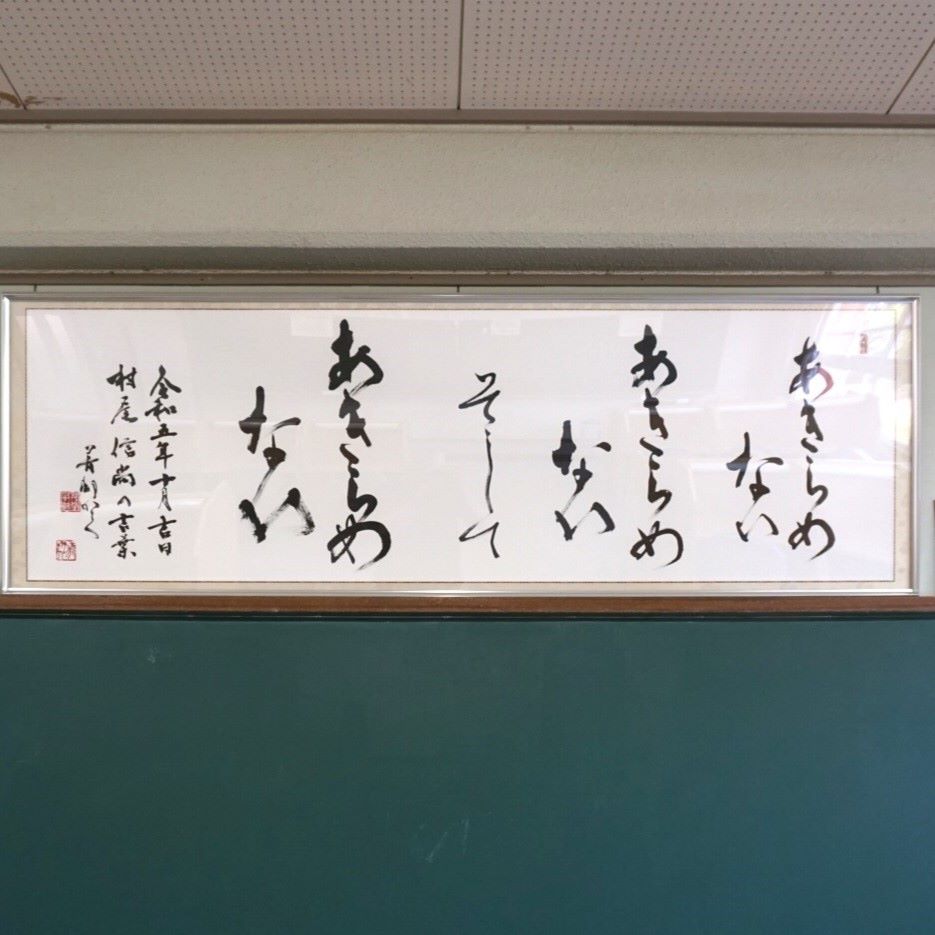 あきらめ
ない
あきらめ
ない
そして
あきらめ
ない
令和五年十月吉日
村尾信尚の言葉
かく